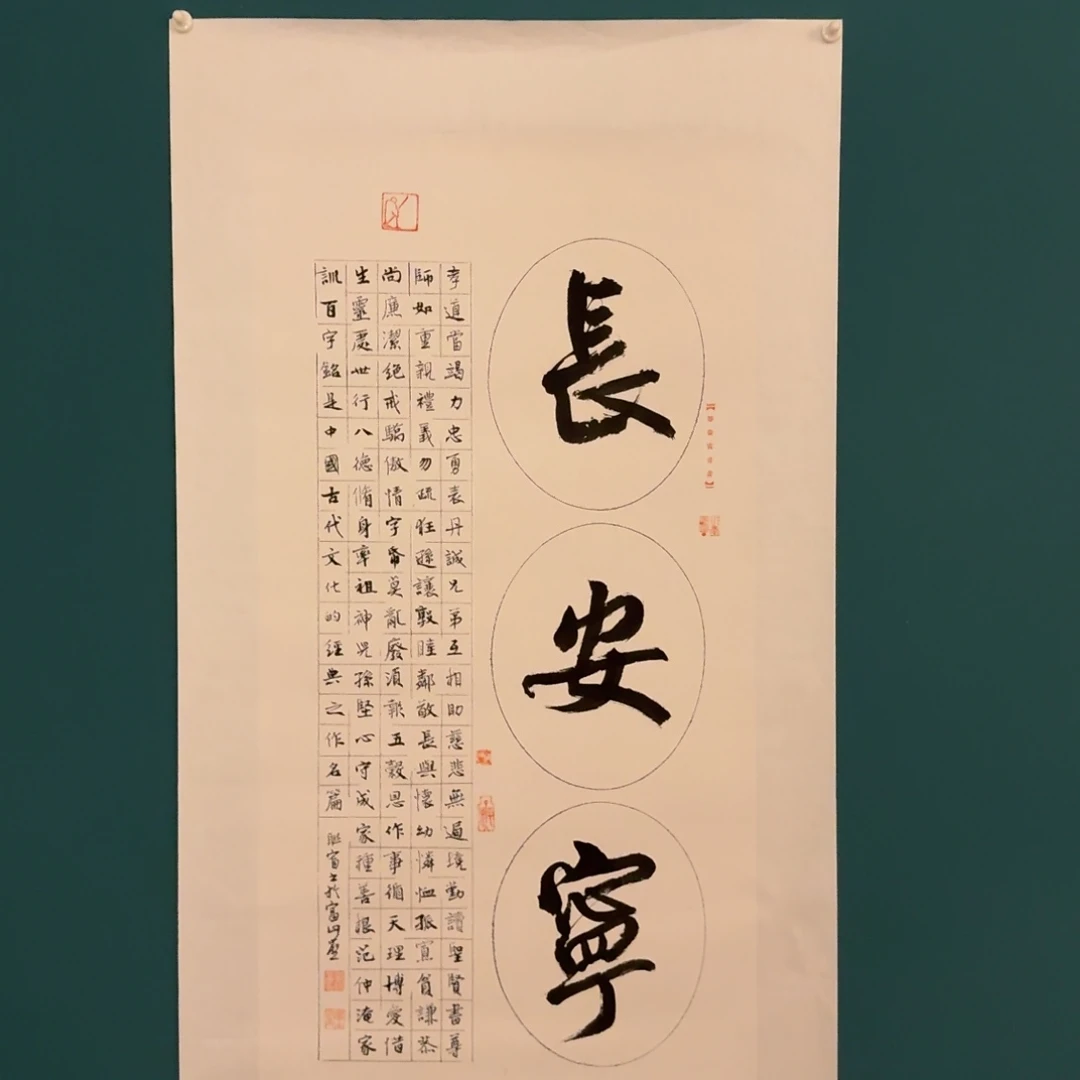 長安寧
孝道當竭力忠勇表丹誠兄弟互相助慈悲無過境勤讀聖賢書尊
師如重親禮義勿疏狂遜讓敦睦鄰敬長與懷幼憐恤孤寡貧謙恭
尚廉潔絕戒驕傲情字帋莫亂廢須報五穀恩作事循天理博愛惜
生靈處世行八德脩身率祖神兒孫堅心守成家種善根范仲淹家
訓百字銘是中國古代文化的經典之作名篇